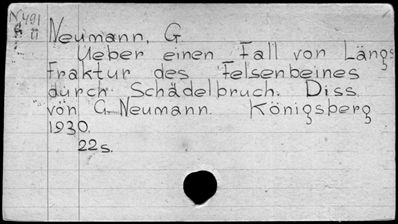 N491
Neumann, G
Ueber einen Fall von Längs
fraktur des Felsenbeines
durch Schädelbruch. Diss
von G. Neumann. Königsberg
1930.
22s.